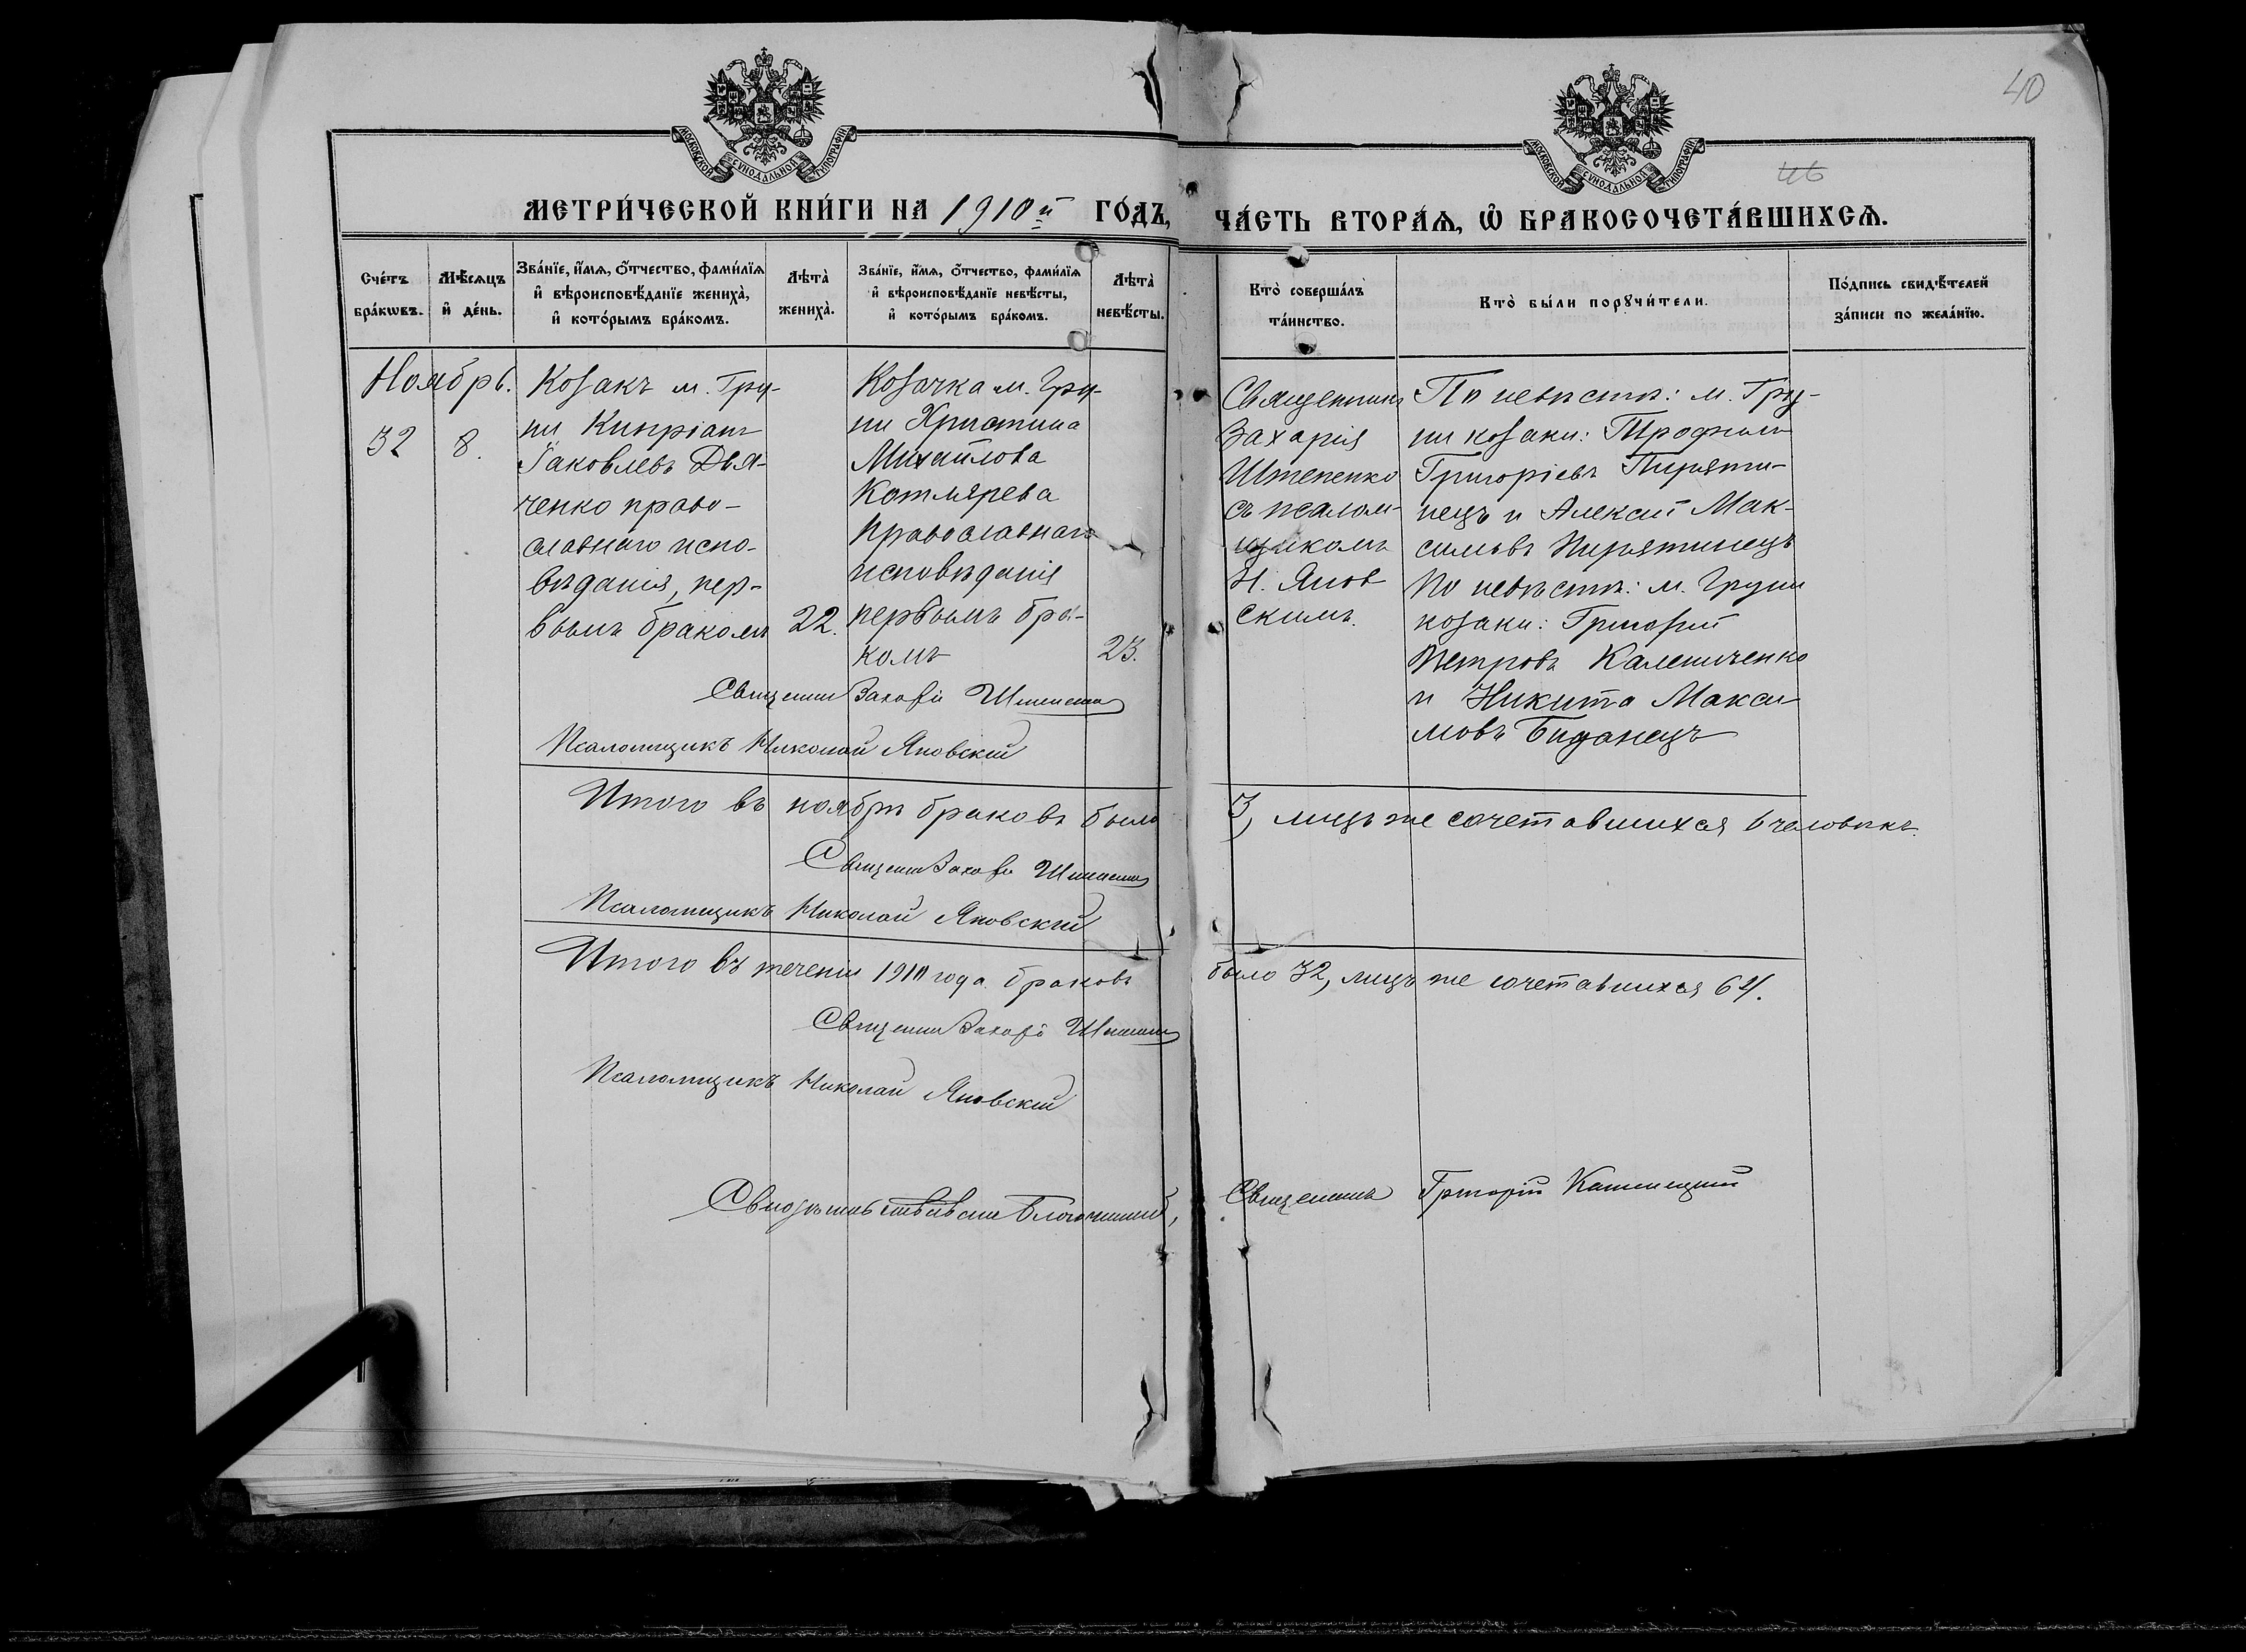 40
46
МОСКОВСКОЙ СУНОДАЛЬНОЙ ТИПОГРАФІИ
МОСКОВСКОЙ СУНОДАЛЬНОЙ ТИПОГРАФІИ
МЕТРИ́ЧЕСКОЙ КНИ́ГИ НА 1910й ГО́ДЪ, ЧА́СТЬ ВТОРА́Ѧ, Ѽ БРАКОСОЧЕТА́ВШИХСѦ.
Сче́тъ
бра́кѡвъ.
Мѣ́сѧцъ
и҆ де́нь.
Зва́нїе, и҆́мѧ, ѻ҆́тчество, фами́лїѧ
и҆ вѣроисповѣ́данїе жениха̀,
и҆ кото́рымъ бра́комъ.
Лѣта̀
жениха̀.
Зва́нїе, и҆́мѧ, ѻ҆́тчество, фами́лїѧ
и҆ вѣроисповѣ́данїе невѣ́сты,
и҆ кото́рымъ бра́комъ.
Лѣта̀
невѣ́сты.
Кто̀ соверша́лъ
та́инство.
Кто̀ бы́ли порꙋчи́тели.
По́дпись свидѣ́телей
за́писи по жела́нїю.
Ноябрь.
32
8.
Козакъ м. Гру-
ни Кипріанъ
Іаковлевъ Дья-
ченко право-
славнаго испо-
вѣданія, пер-
вымъ бракомъ
22.
Козачка м. Гру-
ни Христина
Михайлова
Котлярева
православнаго
исповѣданія
первымъ бра-
комъ
23.
Священникъ
Захарія
Штепенко
съ псалом-
щикомъ
Н. Янов
скимъ.
По невѣстѣ: м. Гру-
ни козаки: Трофимъ
Григоріевъ Пиряти-
нецъ и Алексій Мак-
симовъ Пирятинецъ
По невѣстѣ: м. Груни
козаки: Григорій
Петровъ Калениченко
и Никита Макси
мовъ Биданецъ
Священн Захарій Штепенко
Псаломщикъ Николай Яновскій
Итого въ ноябрѣ браковъ было 3, лицъ же сочетавшихся 6 человѣкъ.
Священн Захарій Штепенко
Псаломщикъ Николай Яновскій
Итого въ теченіи 1910 года браковъ было 32, лицъ же сочетавшихся 64.
Священн Захарій Штепенко
Псаломщикъ Николай Яновскій
Благочинный, Священникъ Григорій